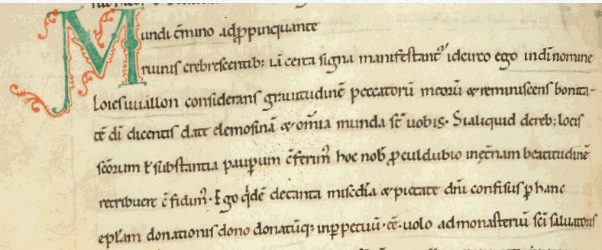 Mundi t̄mino adp̄pinquante
Ruinis crebrescentib; iā certa signa manifestant̄ idcirco ego indīnomine
Loiesuuallon considerans grauitudinē peccatorū meorū & reminiscens bonita-
tē dī dicentis date elemosinā & om̄ia munda st̄ uobis. Sialiquid dereb; locis
sc̄orum ł substantia paupum c̄ferim̄ hoc nob̄ proculdubio inęt̄nam beatitudinē
retribuere c̄fidim̄. Ego q̄dē detanta misc̄dīa & pietate dn̄i confisus p hanc
epl̄am donationis dono donatūq; inppetuū. c̄e. uolo admonasteriū sc̄i saluatoris